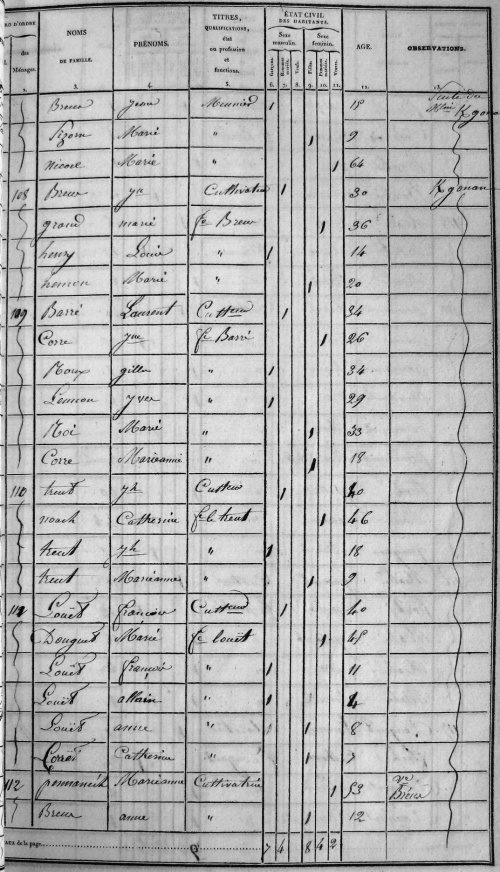 RO D'ORDRE
des
Ménages.
2.
NOMS
DE FAMILLE.
3.
PRÉNOMS.
4.
TITRES,
QUALIFICATIONS,
état
ou profession
et
fonctions.
5.
ÉTAT CIVIL
DES HABITANTS.
Sexe masculin.
Sexe féminin.
Garçons. 6.
Hommes mariés. 7.
Veufs. 8.
Filles. 9.
Femmes mariées. 10.
Veuves. 11.
AGE.
12.
OBSERVATIONS.
13.
Breux jean Meunier 1 15 Suite du
Marie " 1 9
nicole Marie " 1 64
108 Breux yn Cultivateur 1 30 K gonan
grand marie fe Breux 1 36
henry Louis " 1 14
hemon Marie " 1 20
109 Barré Laurent Cultteur 1 34
Corre fe Barré 1 26
Roux gilles " 1 34
Lemon yves " 1 29
Roé Marie " 1 33
Corre Marieanne " 1 18
110 treut yh Cultteur 1 40
noach Catherine fe le treut 1 46
treut yh " 1 18
treut Marieanne " 1 9
Louët françois Cultteur 1 40
Douguet Marie fe louët 1 45
Louët françois " 1 11
Louët allain " 1 4
Louët anne " 1 8
Louët Catherine " 1 7
112 pennaneich Marieanne Cultivatrice 1 53 ve Breux
Breux anne " 1 12
AUX de la page 7 4 8 4 2